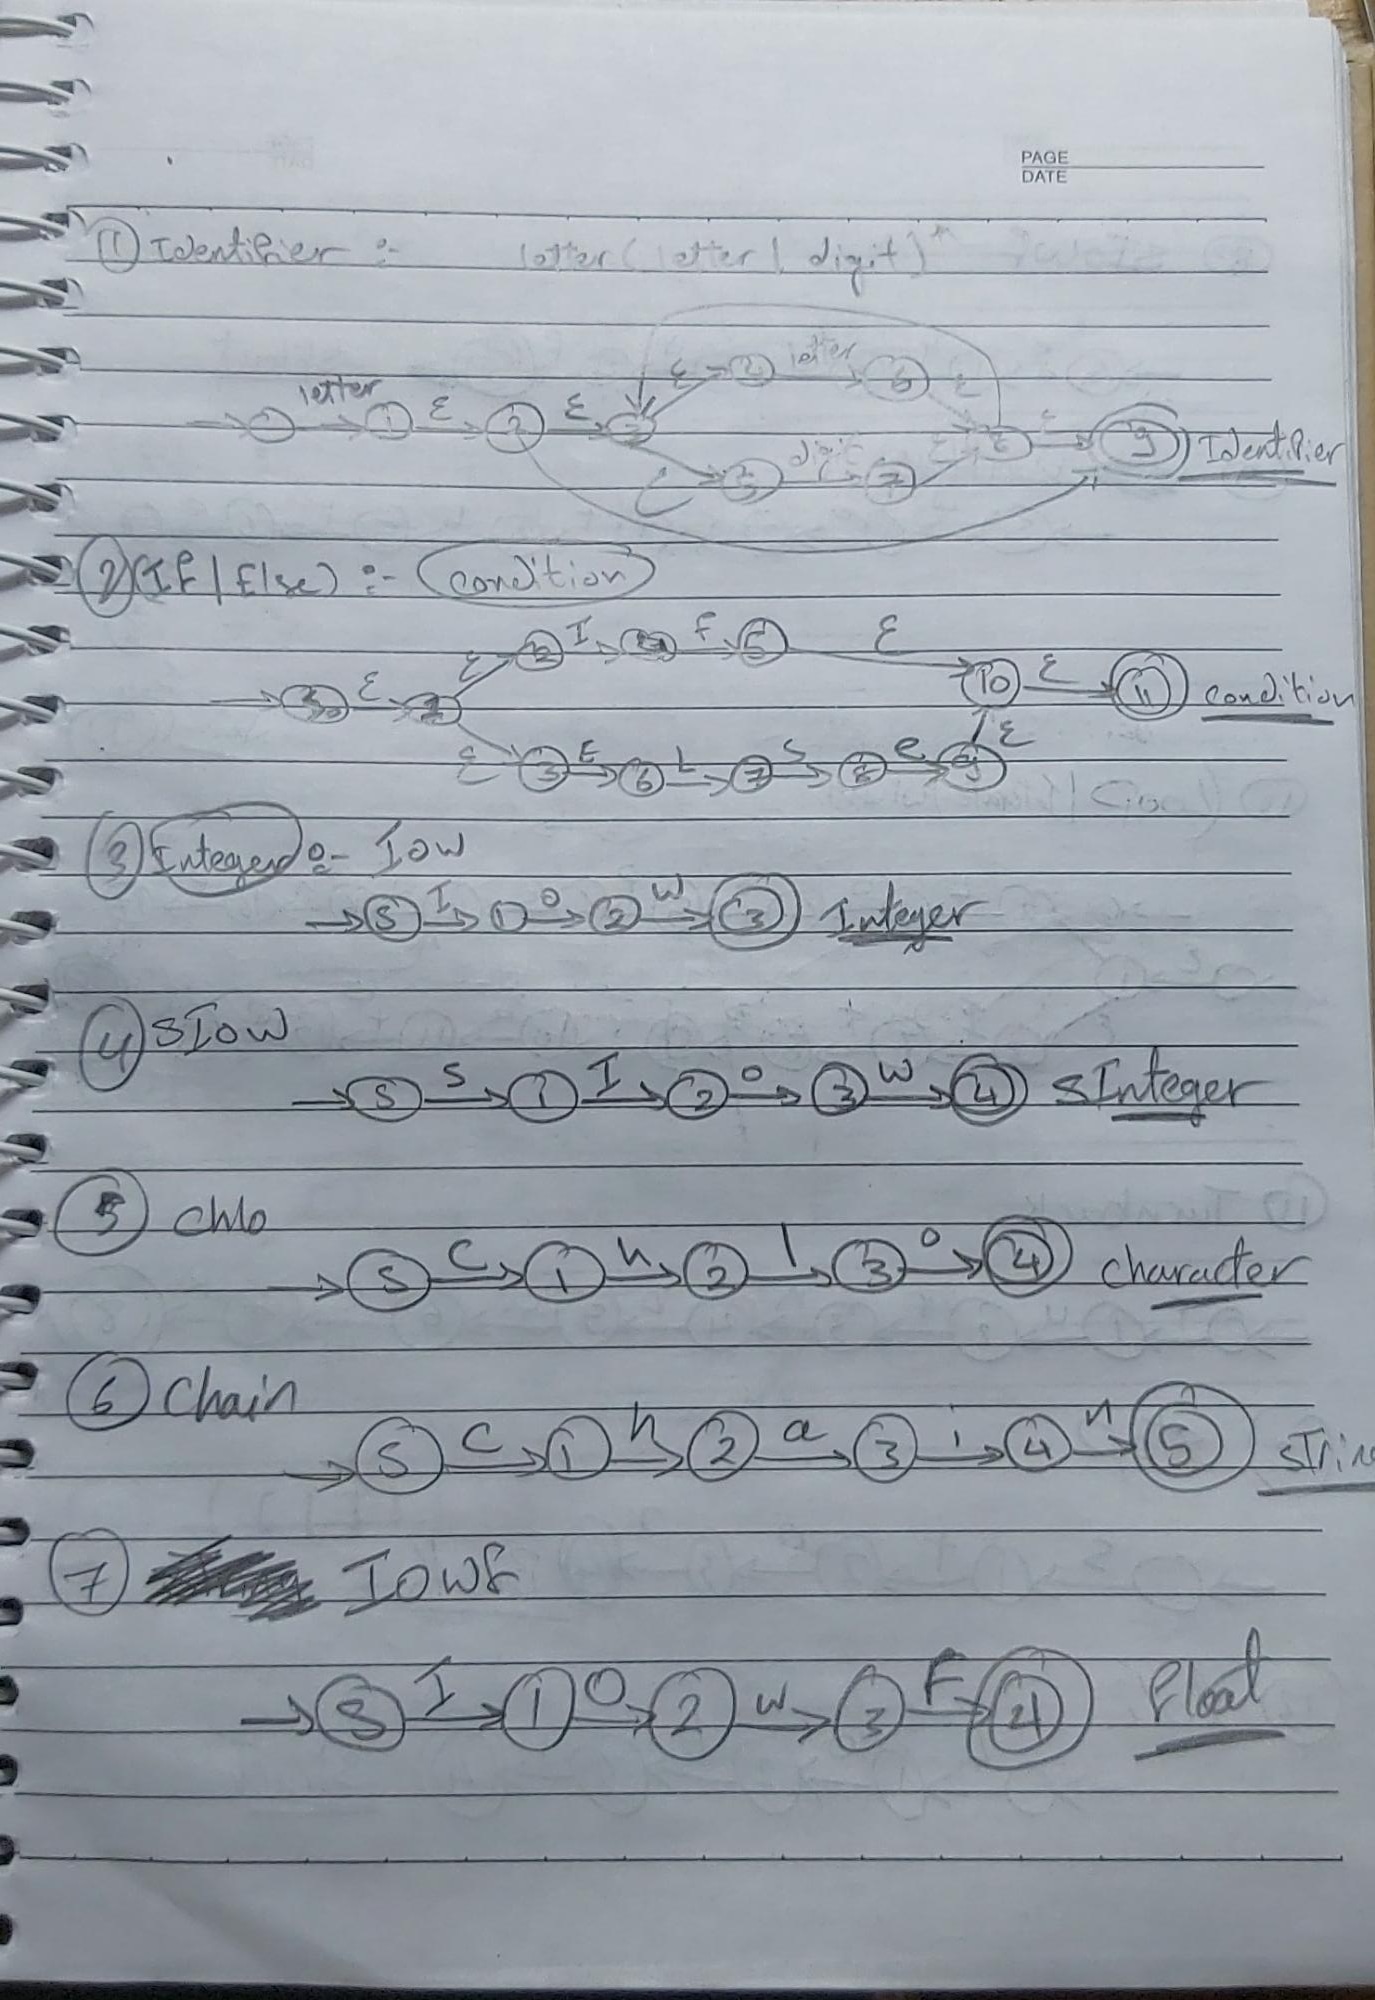 PAGE
DATE
① Identifier :- letter ( letter | digit )*
letter ε ε ε letter ε
① ② digit ε 7 ε 9 Identifier
② (If | Else) :- condition
ε ε I F 5 ε 10 ε 11 condition
ε 3 E 6 L 7 S 8 e 9 ε
③ Integer :- Iow
S I 1 o 2 W 3 Integer
④ SIow
S S 1 I 2 o 3 W 4 SInteger
⑤ Chlo
S C 1 h 2 l 3 o 4 character
⑥ Chain
S C 1 h 2 a 3 i 4 n 5 STrin
⑦ Iowf
S I 1 O 2 w 3 F 4 float